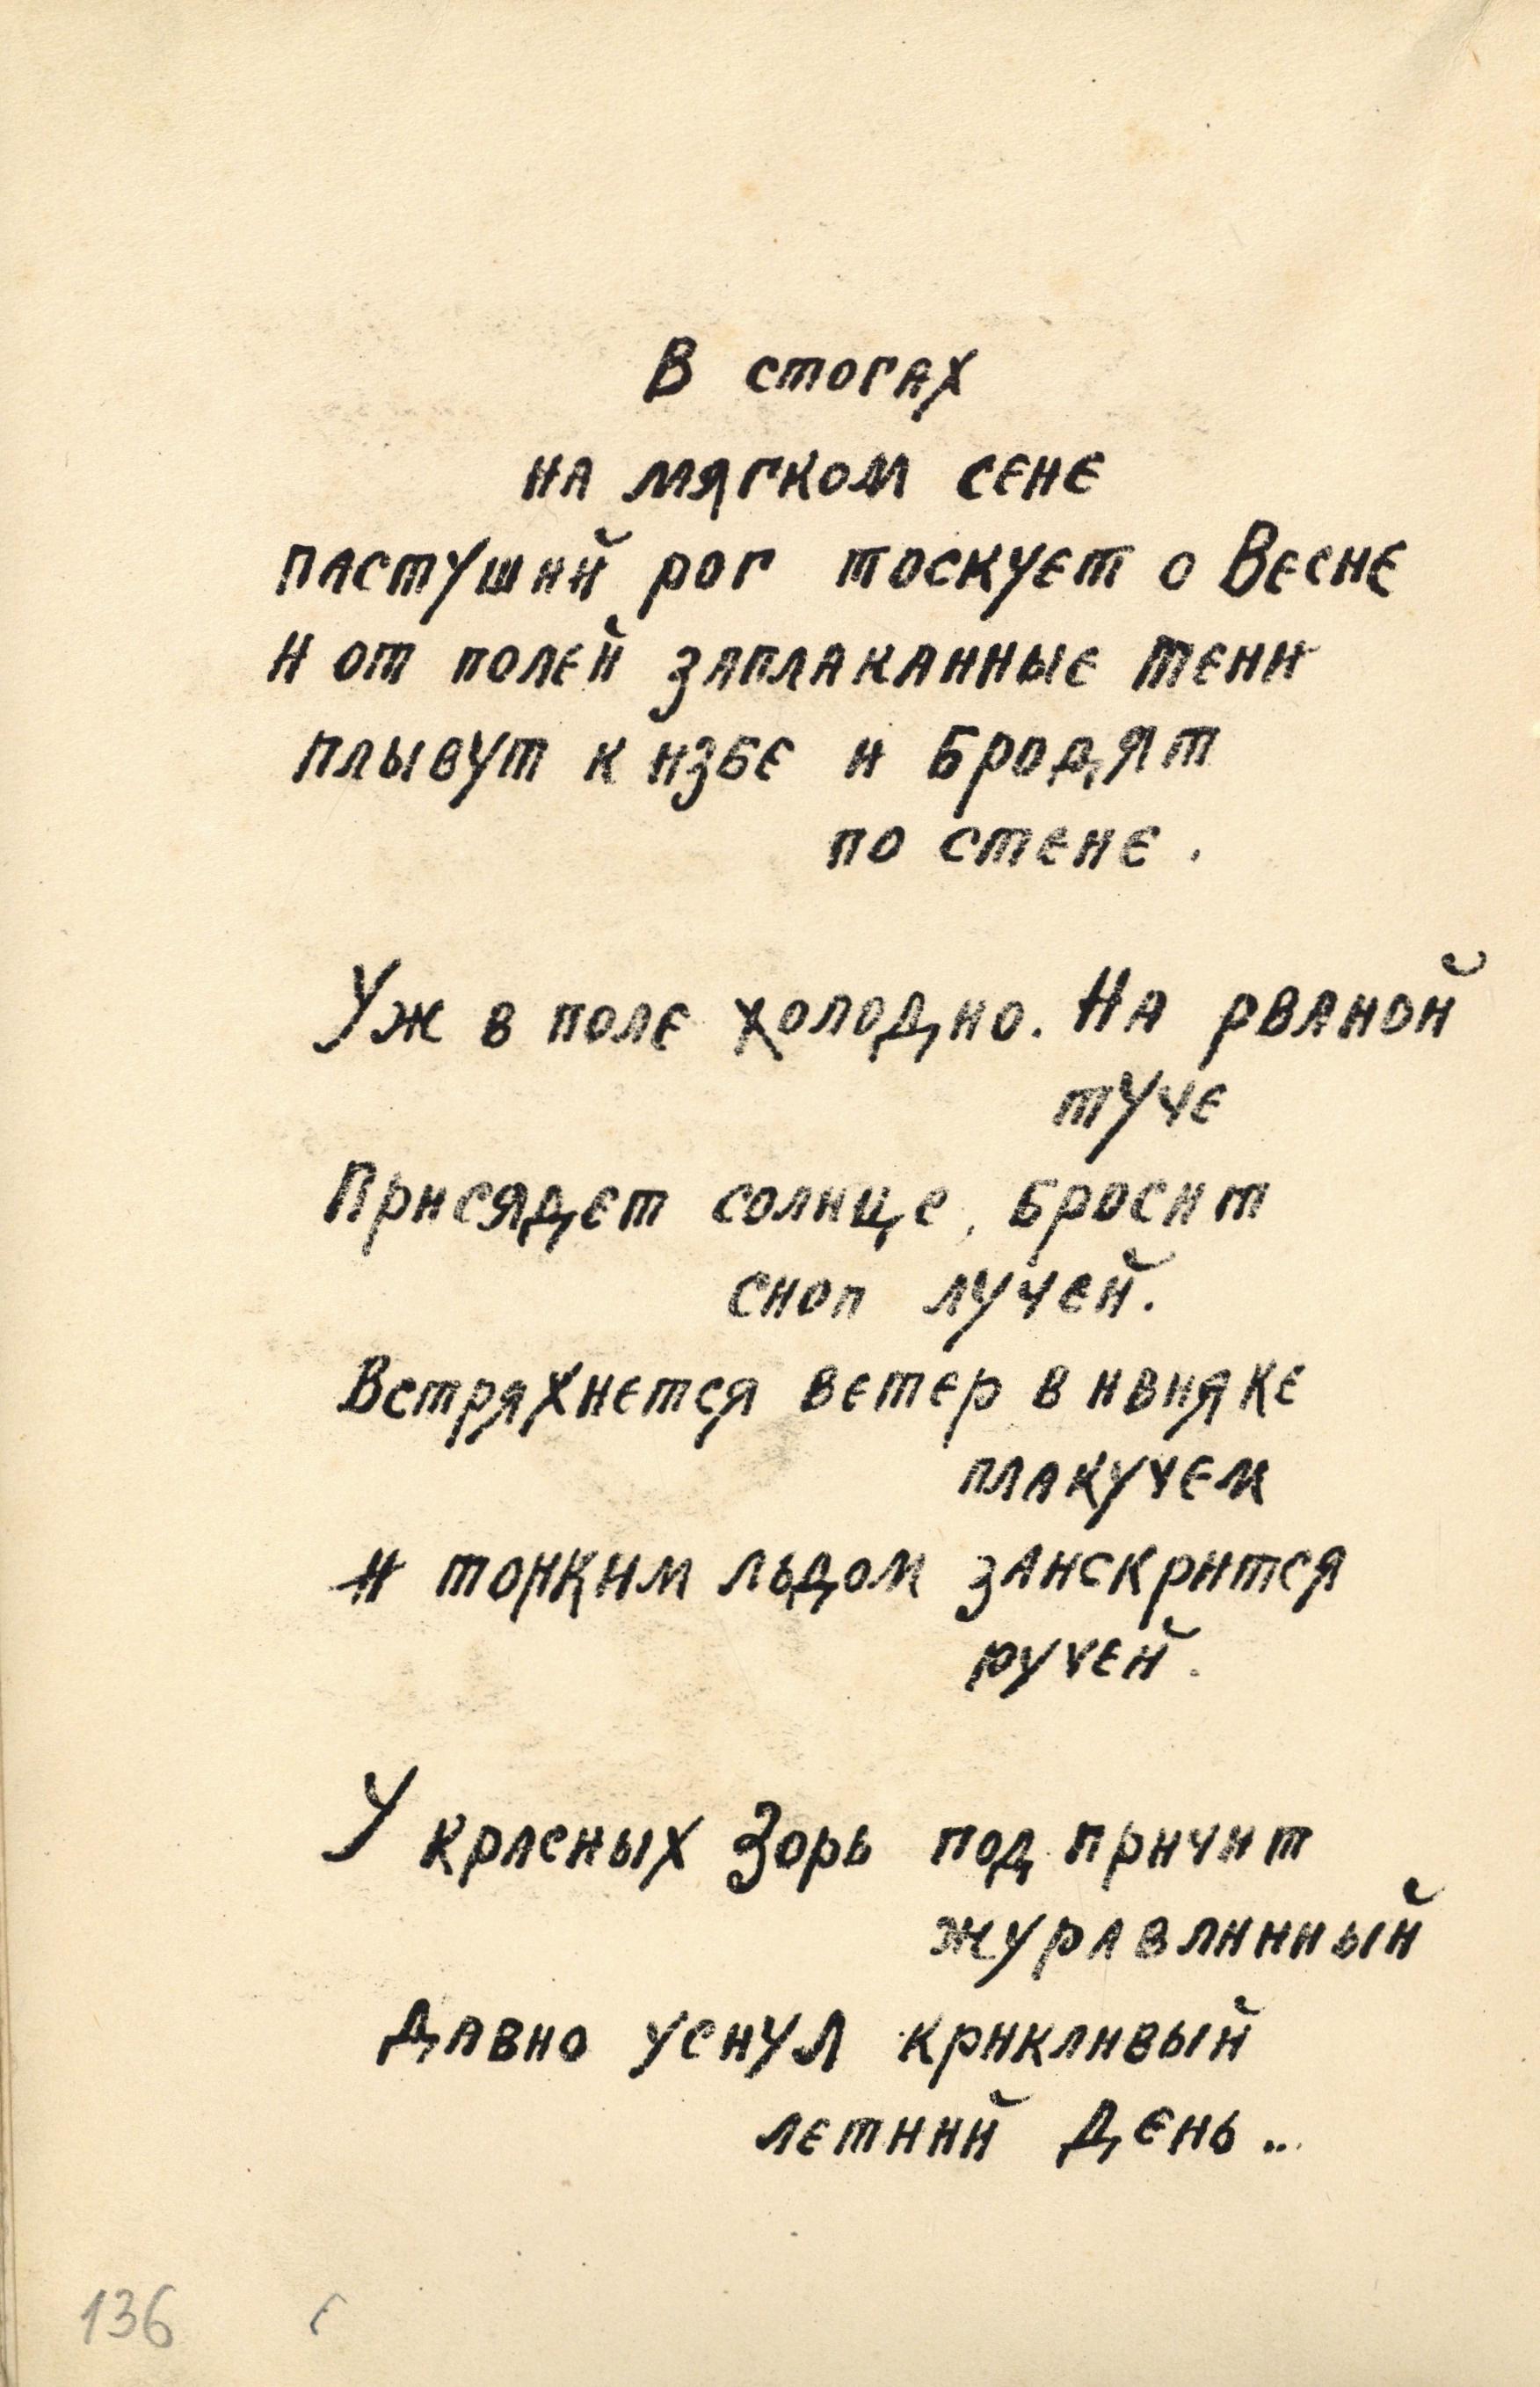 В стогах
на мягком сене
пастуший рог тоскует о Весне
и от полей заплаканные тени
плывут к избе и Бродят
по стене.
Уж в поле холодно. На рваной
туче
Присядет солнце, бросит
сноп лучей.
Встряхнется ветер в ивняке
плакучем
и тонким льдом заискрится
ручей.
У красных Зорь под причит
журавлинный
Давно уснул крикливый
летний День...
136